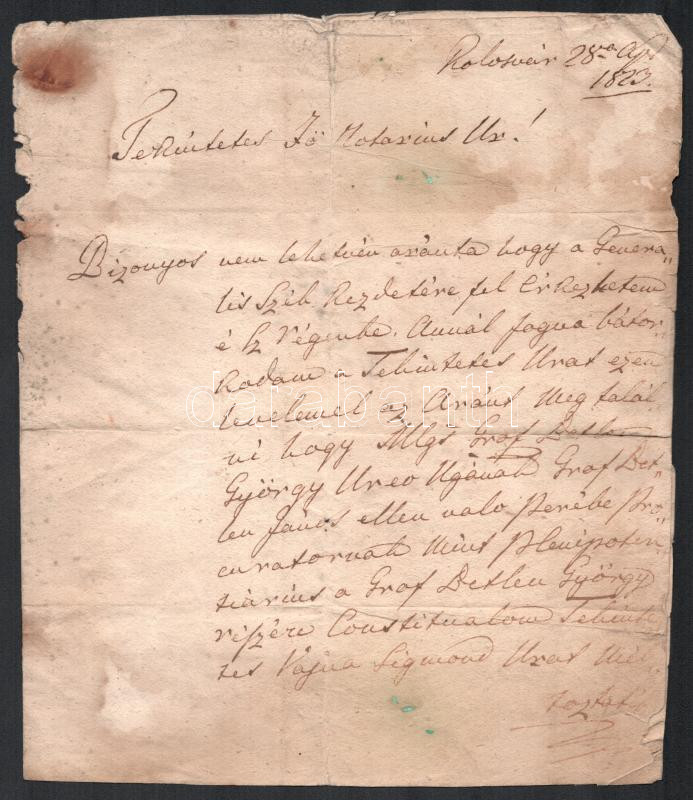 Kolosvár 28va Apr
1823.
Tekintetes Fö Notarius Ur!
Bizonyos nem lehetvén aránta hogy a Genera„
lis Szék Kezdetére fel Érkezhetem
é Sz Régenbe. Annál fogva bátor„
Kodam a Tekintetes Urat ezen
levelemel az Aránt Meg talál
ni hogy Mlgs Grof Betlen
György Ureo Nganak Grof Bet„
len János ellen valo Perébe Pro„
curatornak Mint Plenipoten
tiárius a Grof Betlen György
részére Constitualom Tekinte
tes Vajna Sigmond Urat Mél
toztat
darabanth